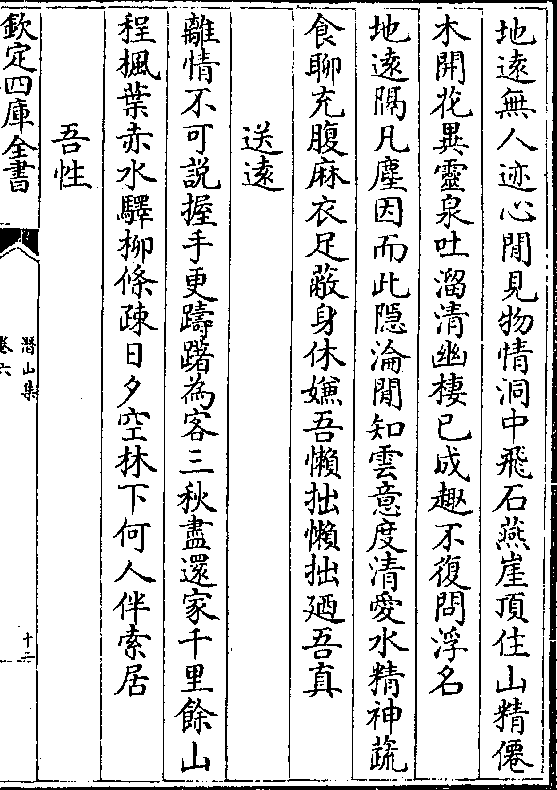 地遠無人迹心閒見物情洞中飛石燕崖頂住山精僊
木開花異靈泉吐溜清幽棲已成趣不復問浮名
地遠隔凡塵因而此隠淪閒知雲意度清愛水精神蔬
食聊充腹麻衣足蔽身休嫌吾懶拙懶拙廼吾真
送逺
離情不可説握手更躊躇為客三秋盡還家千里餘山
程楓葉赤水驛栁條疎日夕空林下何人伴索居
吾性
欽定四庫全書
潛山集
卷六
十二